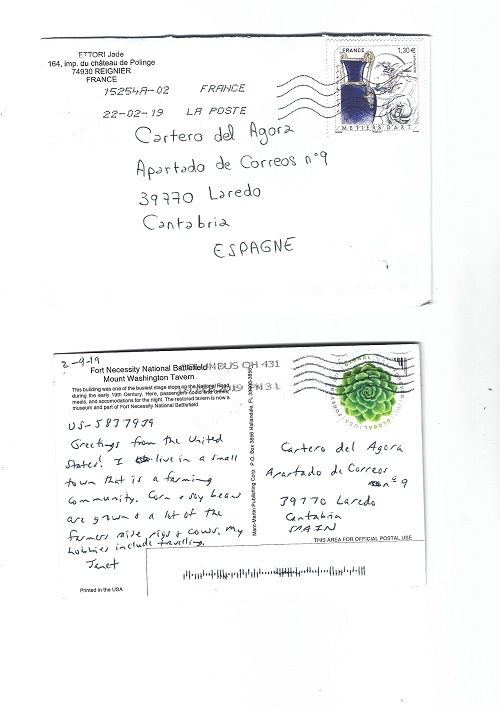 ETTORI Jade
164, imp. du château de Polinge
74930 REIGNIER
FRANCE
15254A-02 FRANCE
22-02-19 LA POSTE
FRANCE 1,30 €
METIERS D'ART
Cartero del Agora
Apartado de Correos nº9
39770 Laredo
Cantabria
ESPAGNE
2-9-19
Fort Necessity National Battlefield
Mount Washington Tavern
This building was one of the busiest stage stops on the National Road
during the early 19th Century. Here, passengers could find drinks,
meals, and accomodations for the night. The restored tavern is now a
museum and part of Fort Necessity National Battlefield.
COLUMBUS OH 431
2019 PM 3 L
US-5837939
Greetings from the United
States! I live in a small
town that is a farming
community. Corn & soy beans
are grown & a lot of the
farmers raise pigs & cows. My
hobbies include travelling.
Janet
Printed in the USA
Marc-Martin Publishing Corp P.O. Box 3856 Hallandale, FL
GLOBAL
Cartero del Agora
Apartado de Correos
nº 9
39770 Laredo
Cantabria
SPAIN
THIS AREA FOR OFFICIAL POSTAL USE